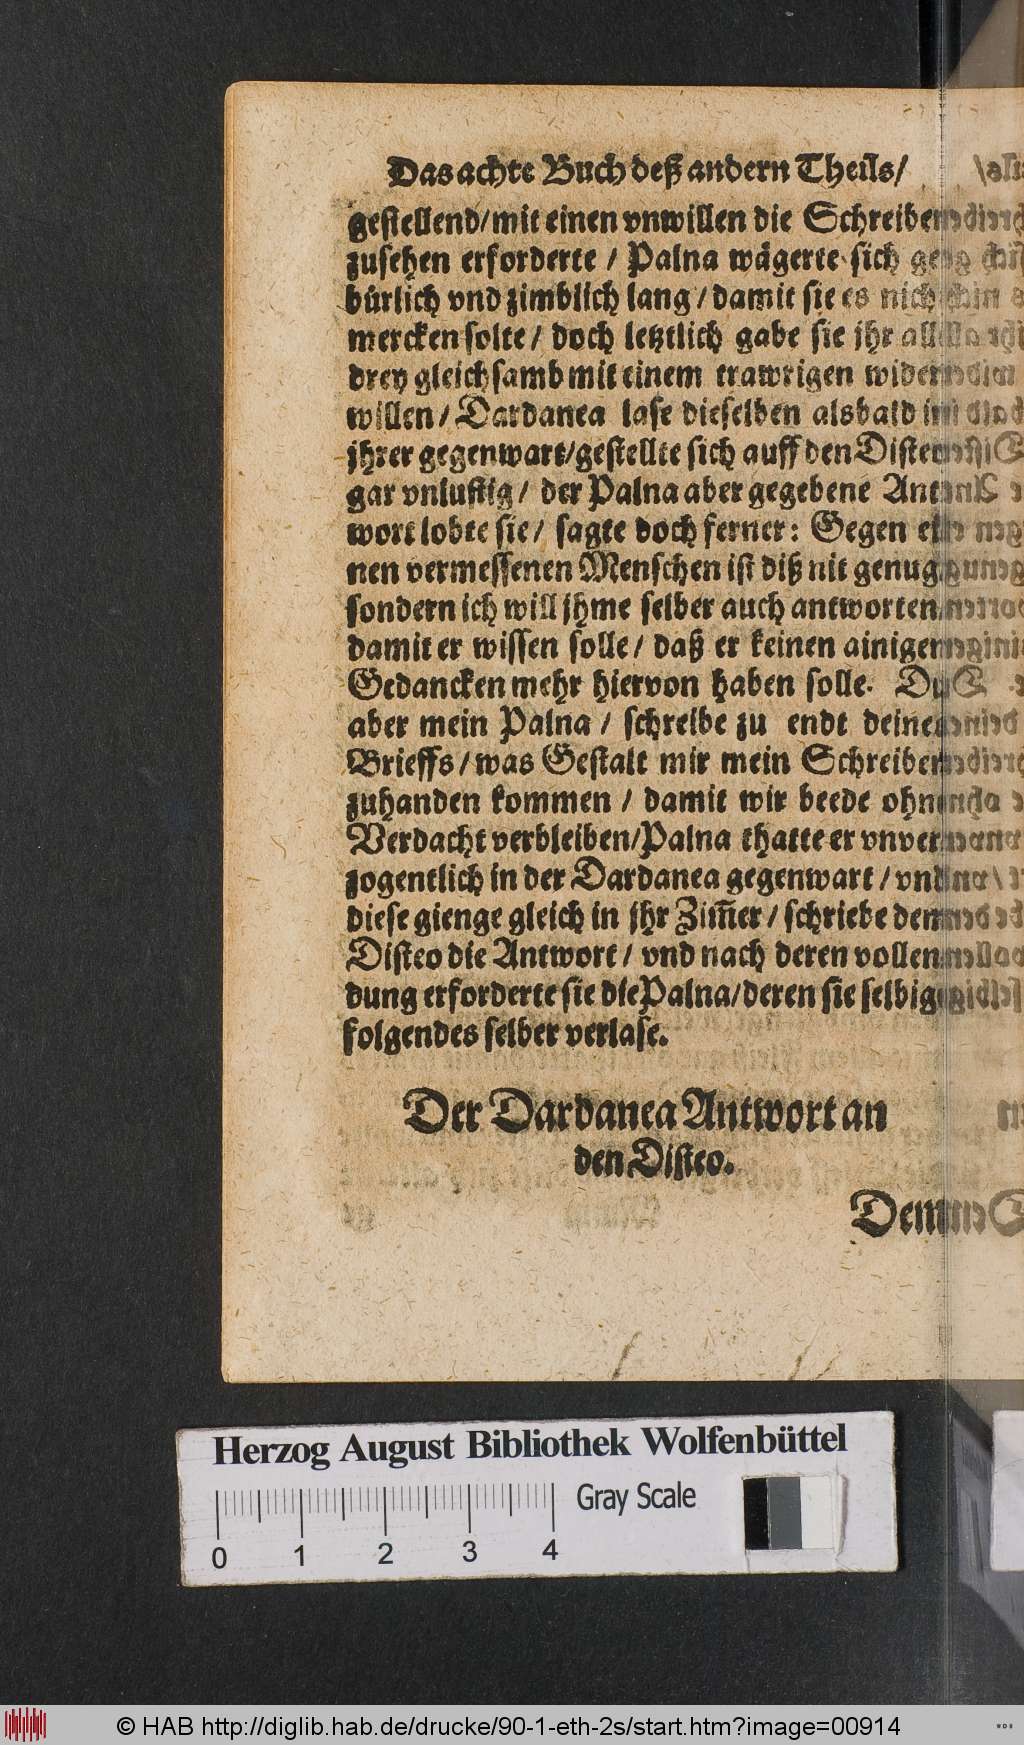 Das achte Buch deß andern Theils/
gestellend/mit einen vnwillen die Schreiben
zusehen erforderte / Palna wägerte sich ge⸗
bürlich vnd zimblich lang / damit sie es nich
mercken solte / doch letztlich gabe sie jhr alle
drey gleichsamb mit einem trawrigen wider⸗
willen / Dardanea lase dieselben alsbald in
jhrer gegenwart/gestellte sich auff den Disteo
gar vnlustig / der Palna aber gegebene Ant⸗
wort lobte sie / sagte doch ferner: Gegen ei⸗
nen vermessenen Menschen ist diß nit genug
sondern ich will jhme selber auch antworten
damit er wissen solle / daß er keinen ainigen
Gedancken mehr hiervon haben solle. Du
aber mein Palna / schreibe zu endt deines
Brieffs / was Gestalt mir mein Schreiben
zuhanden kommen / damit wir beede ohn
Verdacht verbleiben/Palna thatte er vnver⸗
zogentlich in der Dardanea gegenwart / vnd
diese gienge gleich in jhr Zim̃er / schriebe dem
Disteo die Antwort / vnd nach deren vollen⸗
dung erforderte sie die Palna/deren sie selbig
folgendes selber verlase.
Der Dardanea Antwort an
den Disteo.
Dem
Herzog August Bibliothek Wolfenbüttel
Gray Scale
0 1 2 3 4
© HAB http://diglib.hab.de/drucke/90-1-eth-2s/start.htm?image=00914